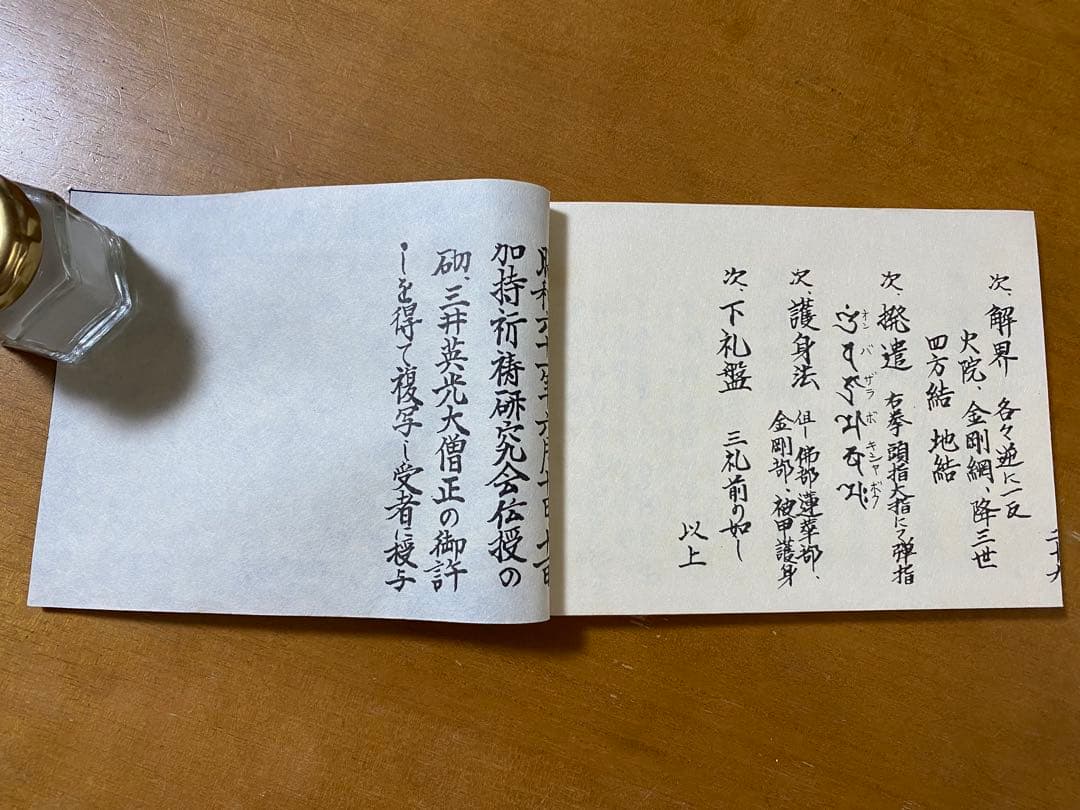 二十九
次、解界 各々逆に一反
火院、金剛網、降三世
四方結 地結
次、撥遣 右拳頭指大指にて弾指
オン バ ザラ ボ キシャ ボク
次、護身法 但し佛部蓮華部、
金剛部、被甲護身
次、下礼盤 三礼前の如し
以上
昭和六十一年六月十日、十一日
加持祈祷研究会伝授の
砌、三井英光大僧正の御許
しを得て複写し受者に授与